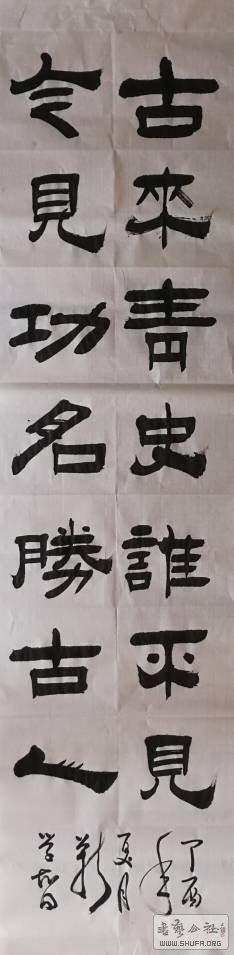 古來青史誰平見
今見功名勝古人
丁酉
年
夏月
書藝公社
WWW.SHUFA.ORG